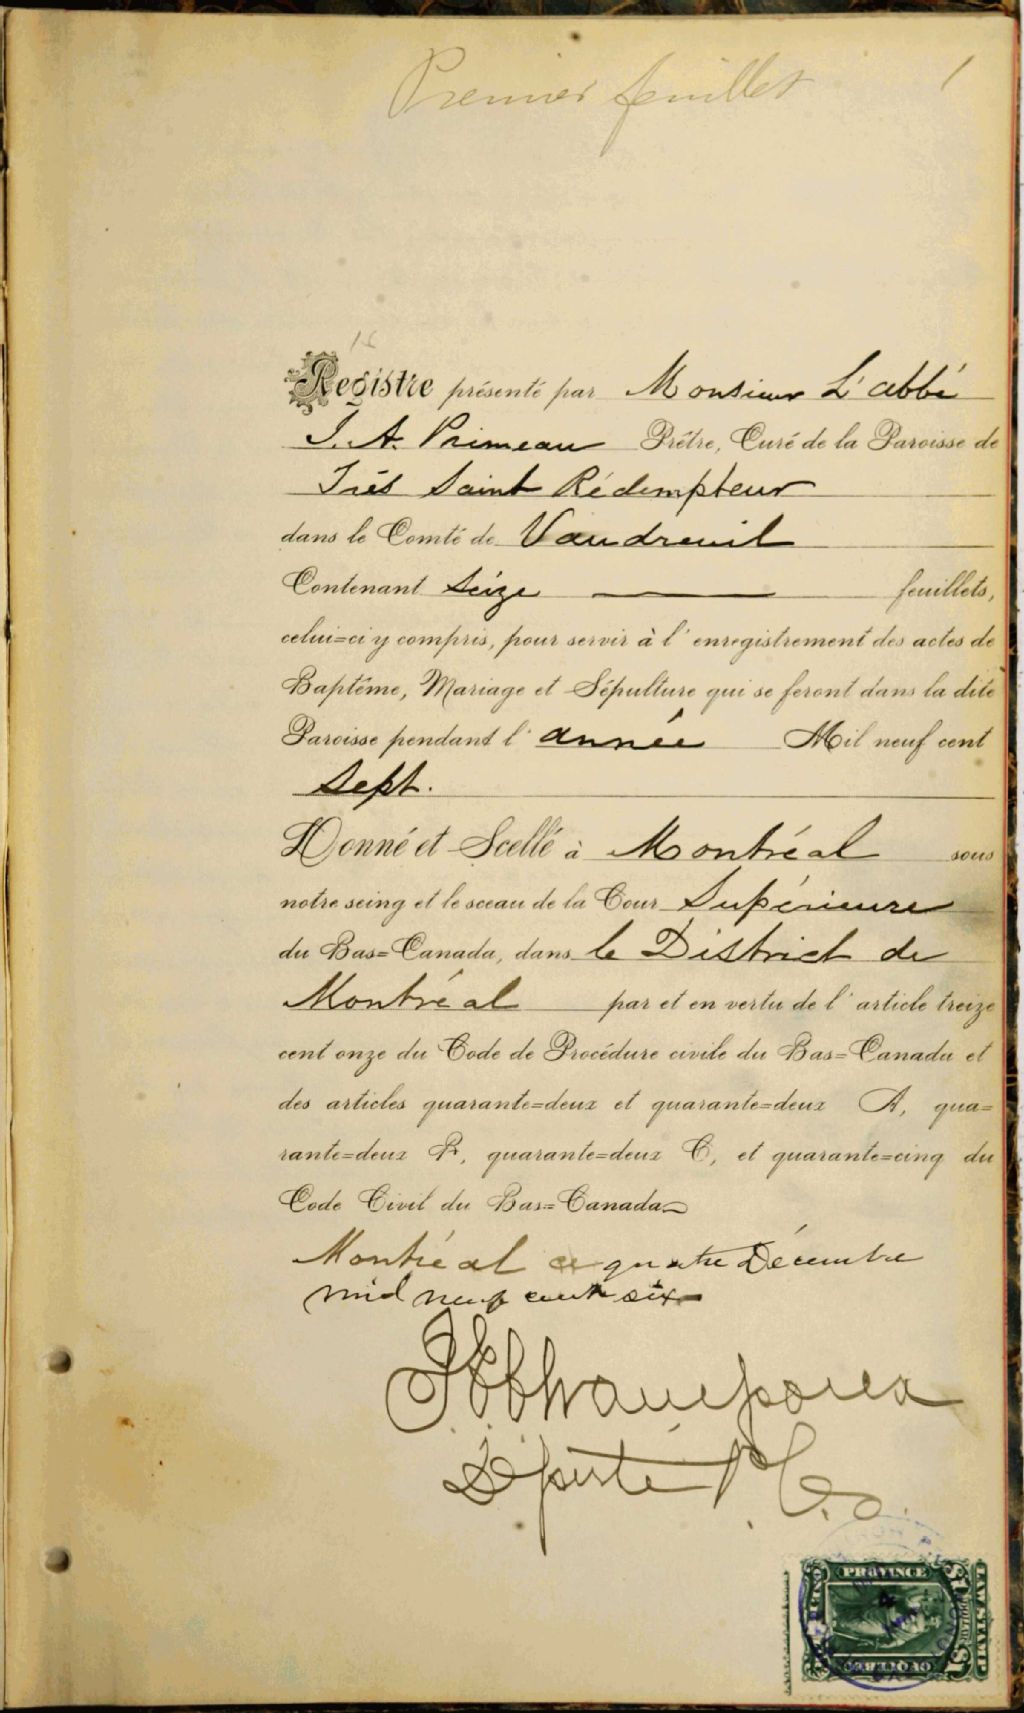 Premier feuillet 1
Registre présenté par Monsieur L'abbé
J. A. Primeau Prêtre, Curé de la Paroisse de
Très Saint Rédempteur
dans le Comté de Vaudreuil
Contenant seize feuillets,
celui=ci y compris, pour servir à l'enregistrement des actes de
Baptême, Mariage et Sépulture qui se feront dans la dite
Paroisse pendant l'année Mil neuf cent
sept.
Donné et Scellé à Montréal sous
notre seing et le sceau de la Cour Supérieure
du Bas=Canada, dans le District de
Montréal par et en vertu de l'article treize
cent onze du Code de Procédure civile du Bas=Canada et
des articles quarante=deux et quarante=deux A, qua=
rante=deux B, quarante=deux C, et quarante=cinq du
Code Civil du Bas=Canada
Montréal ce quatre Décembre
mil neuf cent six
Député P. C. S.
PROVINCE
LAW STAMP